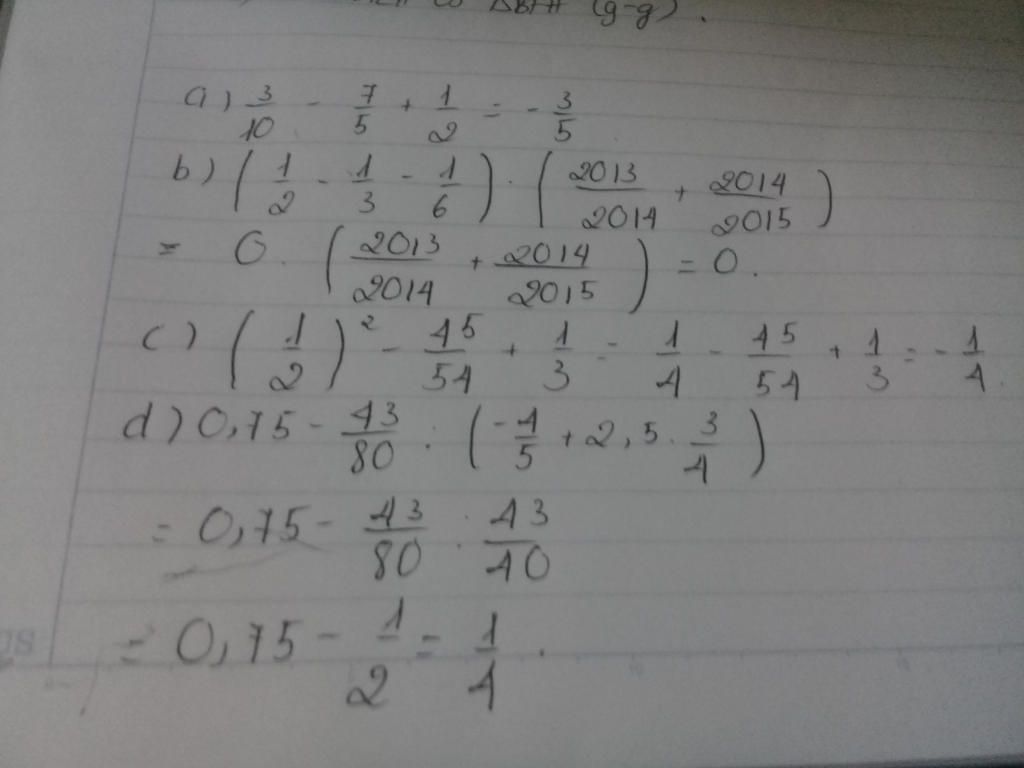 (g-g).
a) 3/10 - 7/5 + 1/2 = - 3/5
b) (1/2 - 1/3 - 1/6) . (2013/2014 + 2014/2015)
= 0. (2013/2014 + 2014/2015) = 0.
c) (1/2)² - 45/54 + 1/3 = 1/4 - 45/54 + 1/3 = - 1/4.
d) 0,75 - 43/80 : (-4/5 + 2,5 . 3/4)
= 0,75 - 43/80 . 43/40
= 0,75 - 1/2 = 1/4.